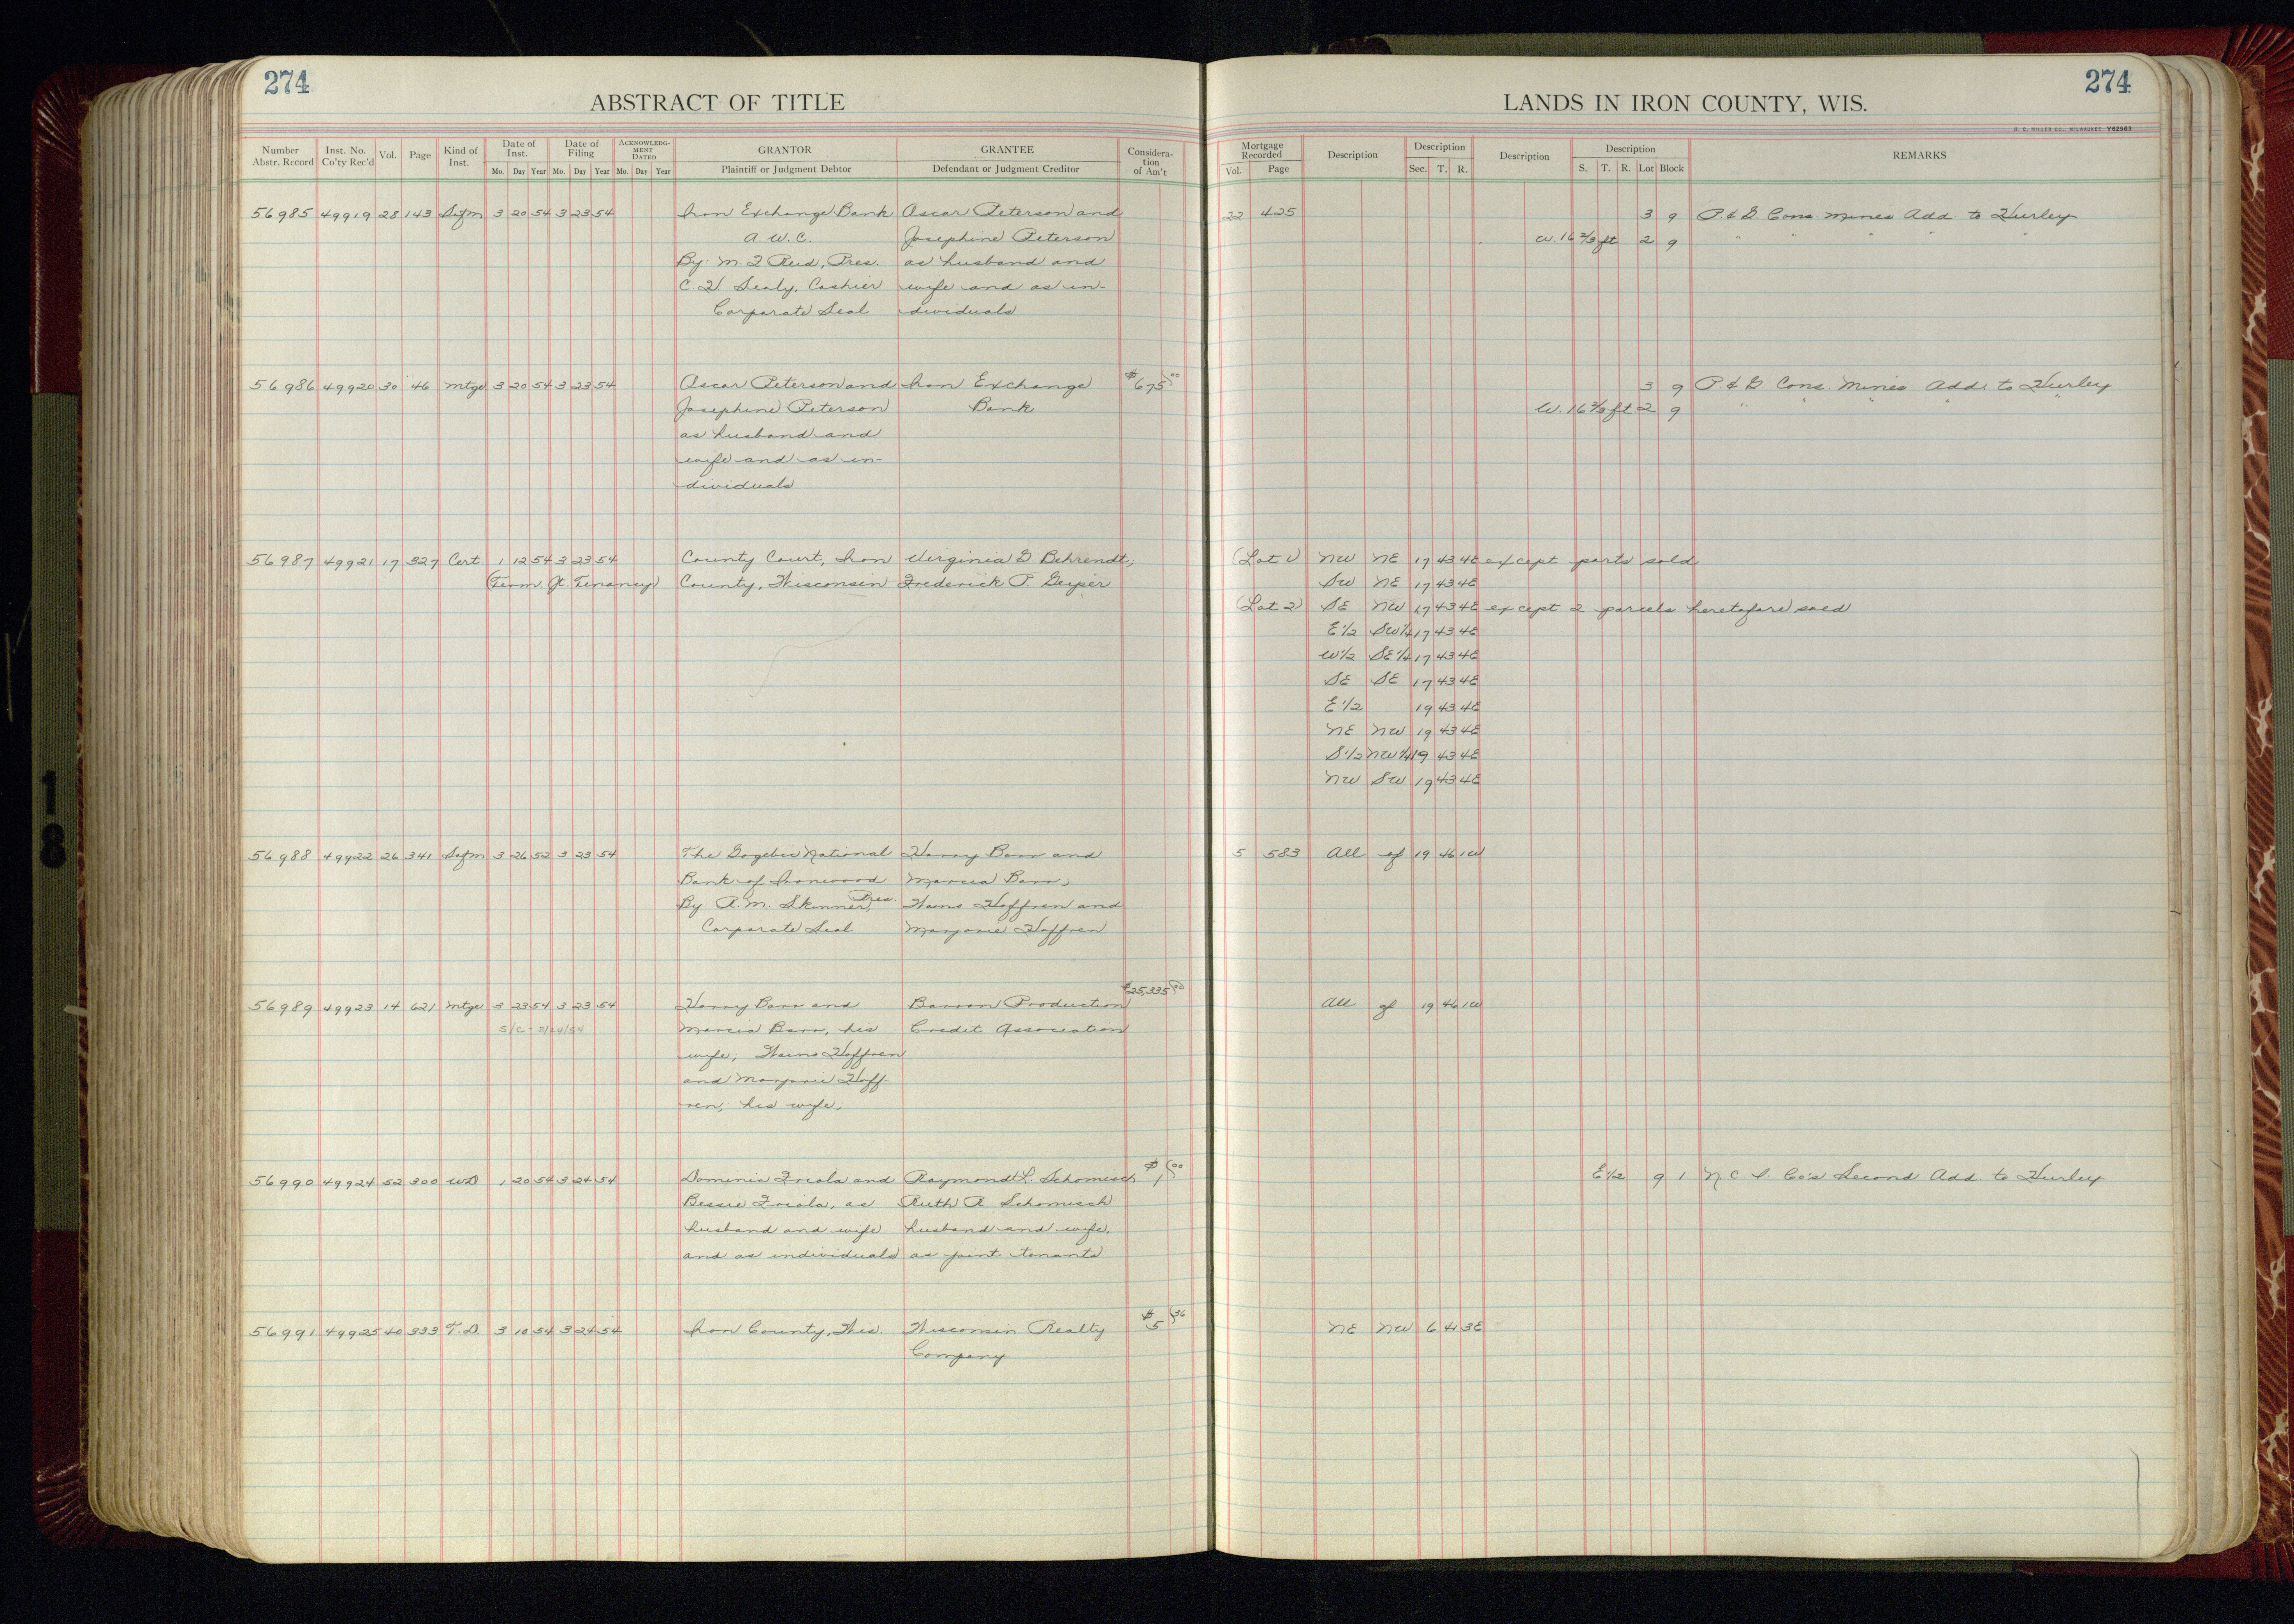 274
ABSTRACT OF TITLE
Number Abstr. Record
Inst. No. Co'ty Rec'd
Vol.
Page
Kind of Inst.
Date of Inst.
Date of Filing
ACKNOWLEDGMENT DATED
GRANTOR
GRANTEE
Consideration of Am't
Mo. Day Year Mo. Day Year Mo. Day Year
Plaintiff or Judgment Debtor
Defendant or Judgment Creditor
56985 49919 28 143 Satm 3 20 54 3 23 54 Iron Exchange Bank Oscar Peterson and
A. W. C. Josephine Peterson
By: M. J. Reid, Pres. as husband and
C. H. Sealy, Cashier wife and as in-
Corporate Seal dividuals
56986 49920 30 46 Mtge 3 20 54 3 23 54 Oscar Peterson and Iron Exchange $675 00
Josephine Peterson Bank
as husband and
wife and as in-
dividuals
56987 49921 17 327 Cert 1 12 54 3 23 54 County Court, Iron Virginia G Behrendt,
(Term. Jt. Tenancy) County, Wisconsin Frederick P. Geyser
56988 49922 26 341 Satm 3 26 52 3 23 54 The Gogebic National Harry Barr and
Bank of Ironwood Marcia Barr,
By: R. M. Skinner, Pres. Waino Hoffren and
Corporate Seal Marjorie Hoffren
56989 49923 14 621 Mtge 3 23 54 3 23 54 Harry Barr and Barron Production $25,335 00
S/C - 3/24/54 Marcia Barr, his Credit Association
wife; Waino Hoffren
and Marjorie Hoff-
ren, his wife;
56990 49924 52 300 WD 1 20 54 3 24 54 Dominic Friola and Raymond L. Schomisch $1 00
Bessie Friola, as Ruth R. Schomisch
husband and wife husband and wife,
and as individuals as joint tenants
56991 49925 40 333 T.D. 3 10 54 3 24 54 Iron County, Wis. Wisconsin Realty $5 36
Company
274
LANDS IN IRON COUNTY, WIS.
H. C. MILLER CO., MILWAUKEE Y62963
Mortgage Recorded
Description
Description
Description
Description
REMARKS
Vol. Page
Sec. T. R.
S. T. R. Lot Block
22 425 3 9 P & G Cons. Mines Add. to Hurley
W. 16 2/3 ft 2 9 " " " " "
3 9 P & G Cons. Mines Add. to Hurley
W. 16 2/3 ft 2 9 " " " "
(Lot 1) NW NE 17 43 4E except parts sold
SW NE 17 43 4E
(Lot 2) SE NW 17 43 4E except 2 parcels heretofore sold
E 1/2 SW 1/4 17 43 4E
W 1/2 SE 1/4 17 43 4E
SE SE 17 43 4E
E 1/2 19 43 4E
NE NW 19 43 4E
S 1/2 NW 1/4 19 43 4E
NW SW 19 43 4E
5 583 All of 19 46 1W
All of 19 46 1W
E 1/2 9 1 N. C. I. Co's Second Add. to Hurley
NE NW 6 41 3E
18